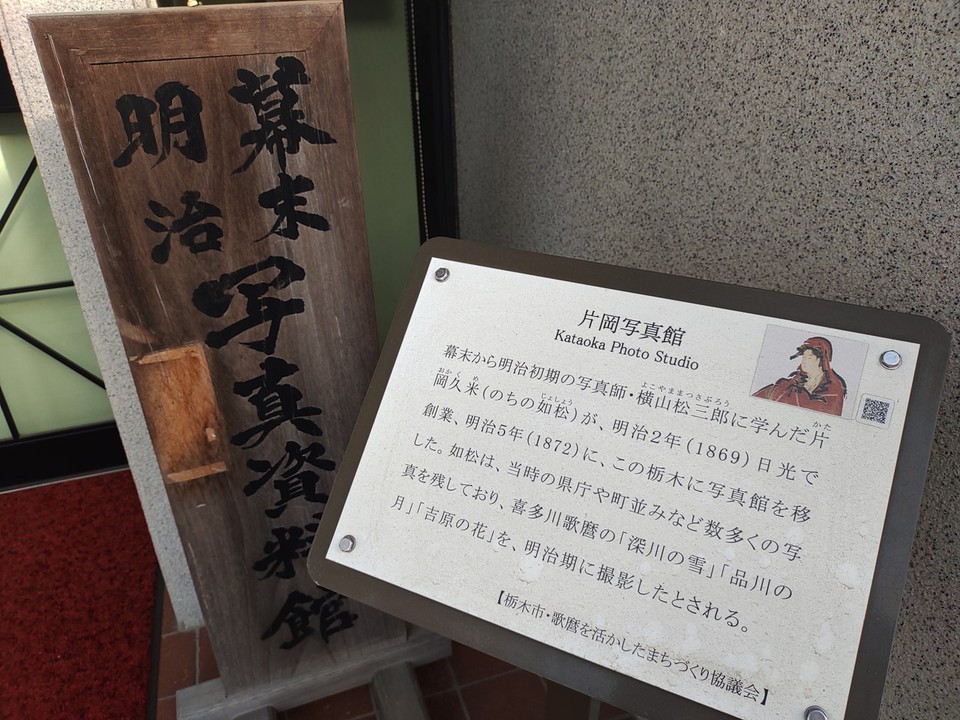 幕末
明治
写真資料館
片岡写真館
Kataoka Photo Studio
幕末から明治初期の写真師・横山松三郎に学んだ片
岡久米(のちの如松)が、明治2年(1869)日光で
創業、明治5年(1872)に、この栃木に写真館を移
した。如松は、当時の県庁や町並みなど数多くの写
真を残しており、喜多川歌麿の「深川の雪」「品川の
月」「吉原の花」を、明治期に撮影したとされる。
【栃木市・歌麿を活かしたまちづくり協議会】